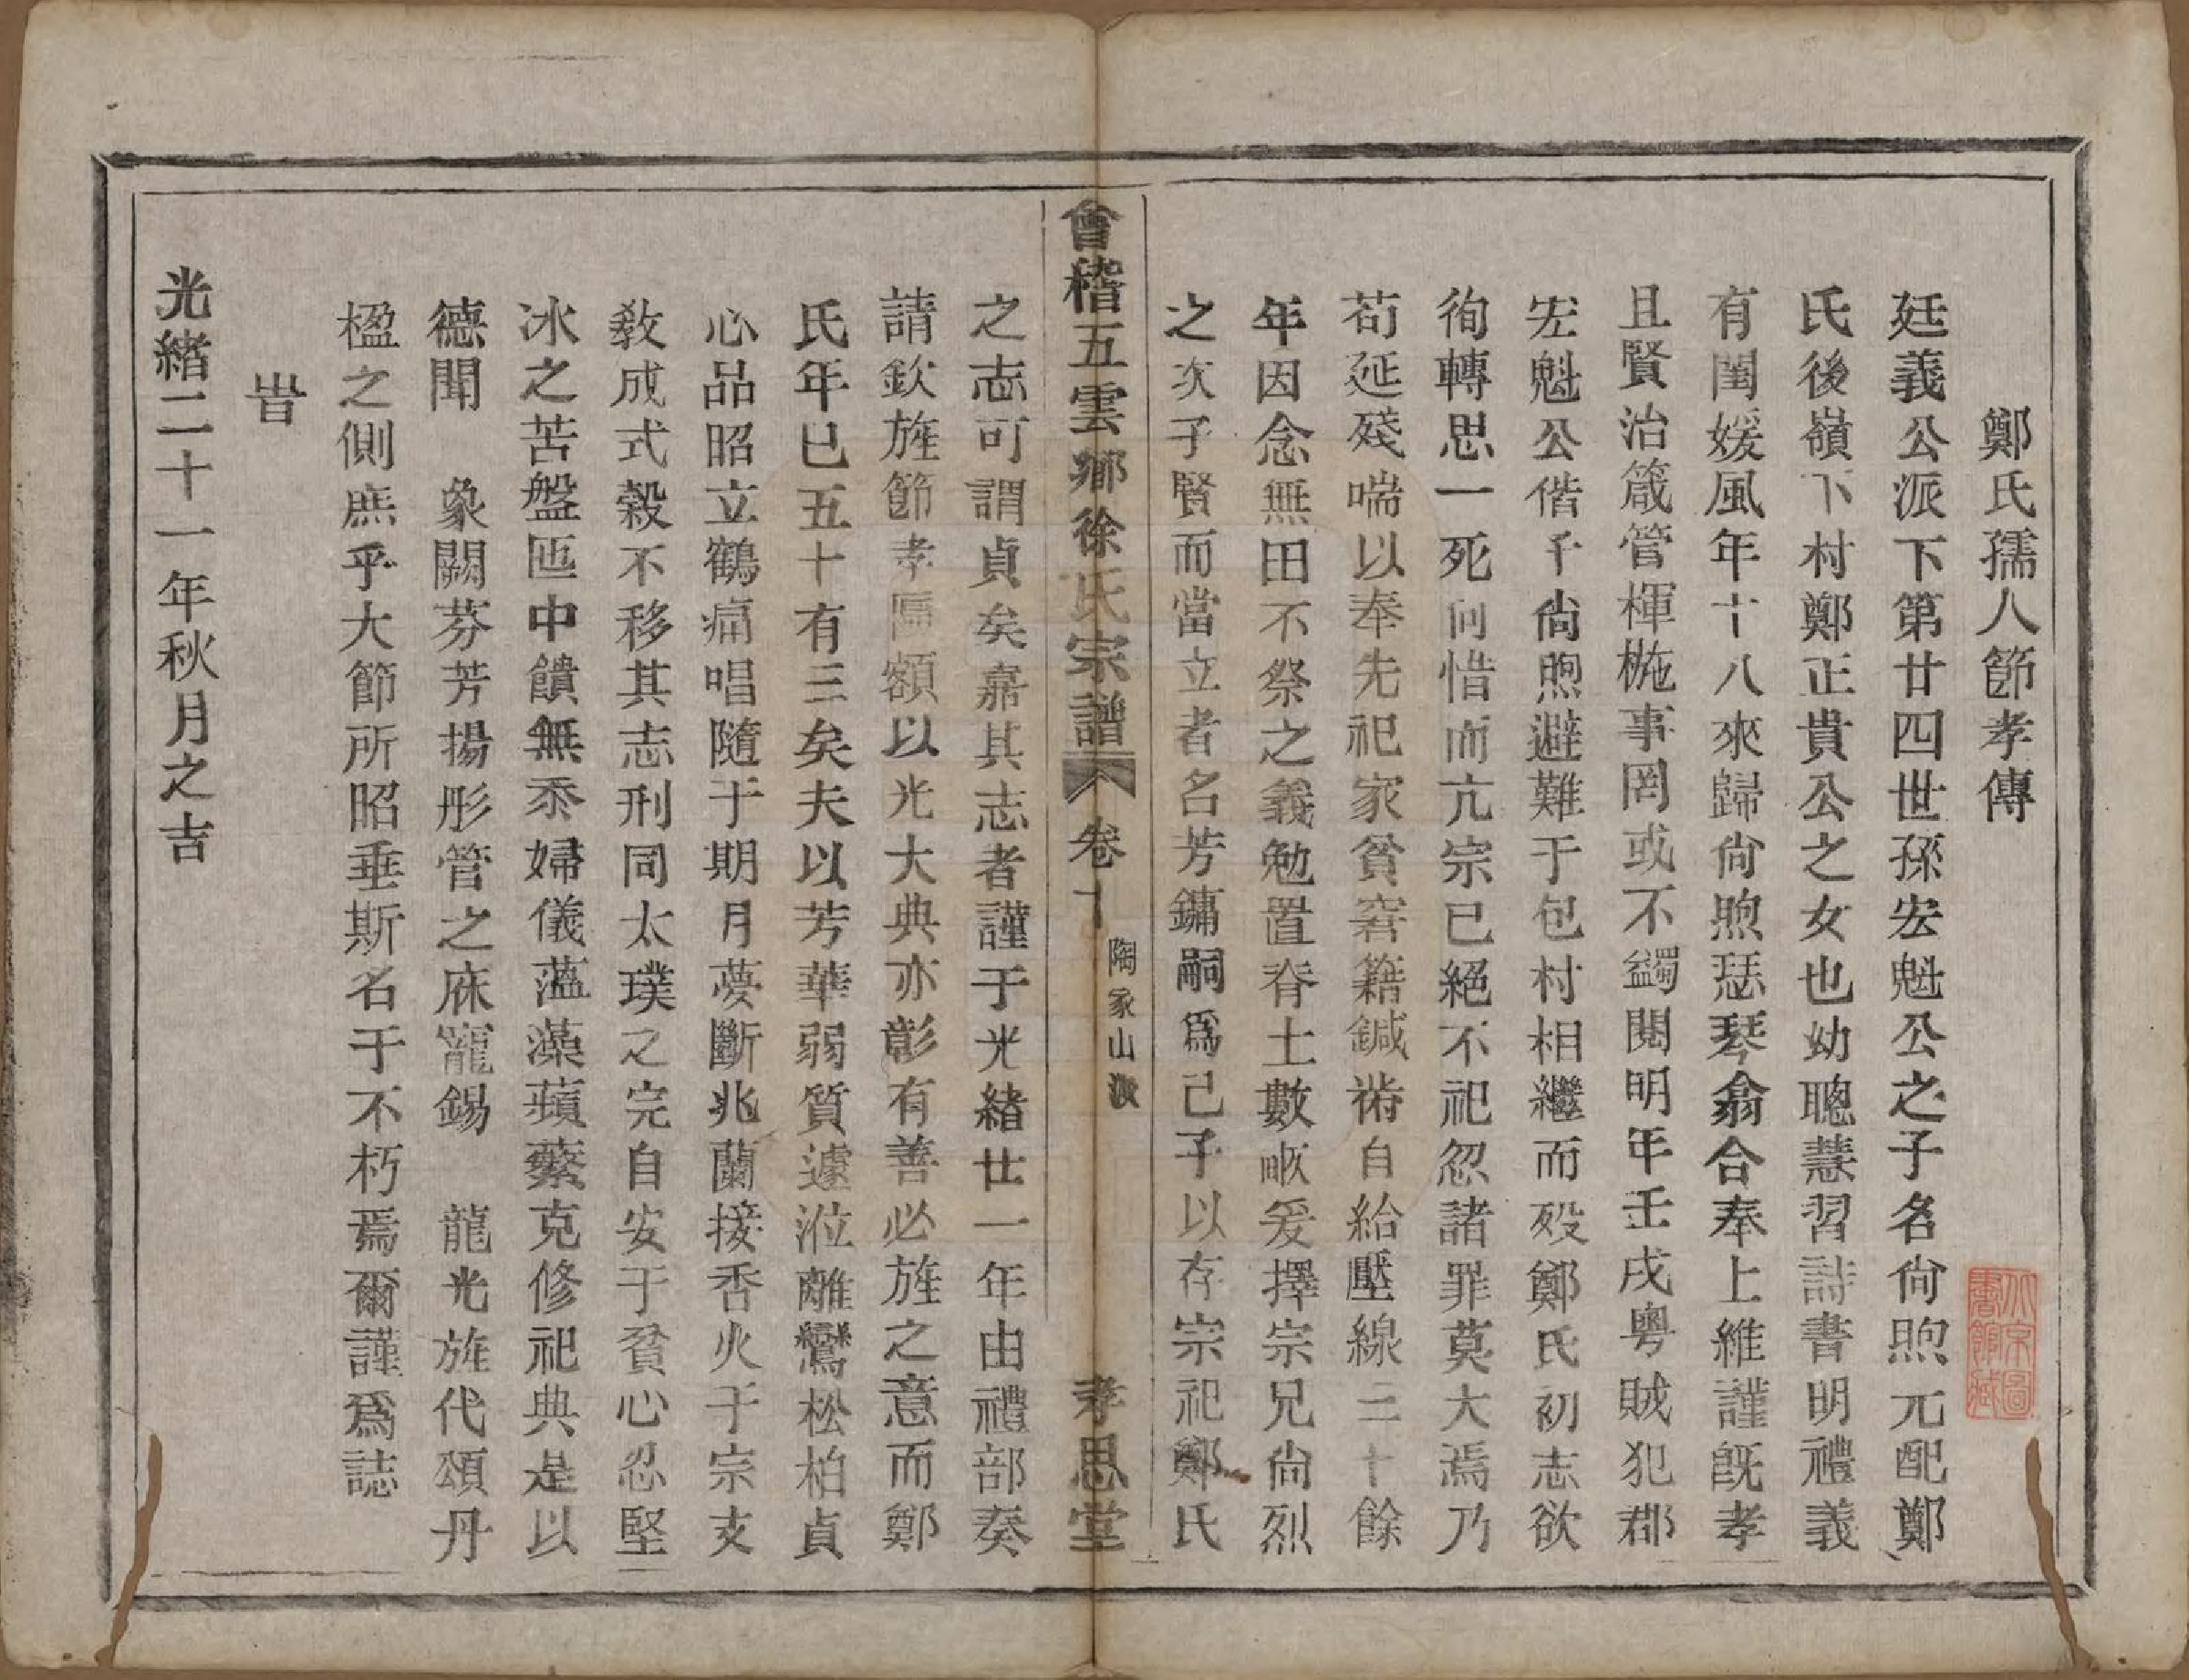 鄭氏孺人節孝傳
廷義公派下第廿四世孫宏魁公之子名尙煦元配鄭
氏後嶺下村鄭正貴公之女也幼聰慧習詩書明禮義
有閨媛風年十八來歸尙煦瑟琴翕合奉上維謹旣孝
且賢治箴管楎椸事罔或不蠲閱明年壬戌粵賊犯郡
宏魁公偕子尙煦避難于包村相繼而歿鄭氏初志欲
徇轉思一死何惜而亢宗已絕不祀忽諸罪莫大焉乃
苟延殘喘以奉先祀家貧窘籍鍼黹自給壓線二十餘
年因念無田不祭之義勉置脊土數畝爰擇宗兄尙烈
之次子賢而當立者名芳鏞嗣爲己子以存宗祀鄭氏
會稽五雲鄉徐氏宗譜 卷十 陶家山派 孝思堂
之志可謂貞矣嘉其志者謹于光緒廿一年由禮部奏
請欽旌節孝匾額以光大典亦彰有善必旌之意而鄭
氏年已五十有三矣夫以芳華弱質遽涖離鸞松柏貞
心品昭立鶴痛唱隨于期月夢斷兆蘭接香火于宗支
敎成式穀不移其志刑同太璞之完自安于貧心忍堅
冰之苦盤匜中饋無忝婦儀薀藻蘋蘩克修祀典是以
德聞　象闕芬芳揚彤管之庥寵錫　龍光旌代頌丹
楹之側庶乎大節所昭垂斯名于不朽焉爾謹爲誌
旹
光緒二十一年秋月之吉